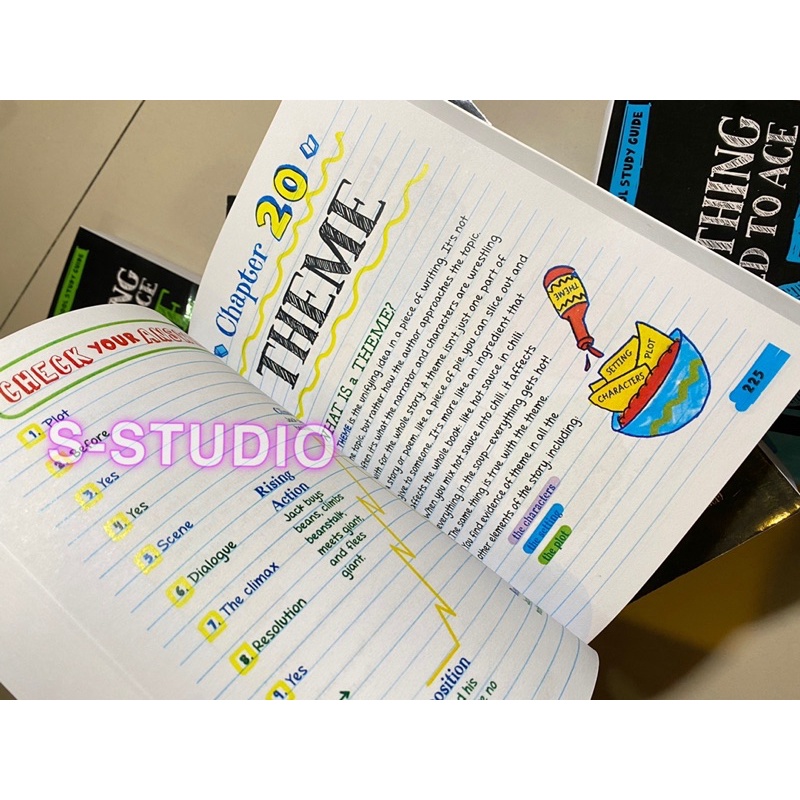 CHECK YOUR
1. Plot
2. Before
3. Yes
4. Yes
5. Scene
6. Dialogue
7. The climax
8. Resolution
9. Yes
Rising
Action
Jack buys
beans, climbs
beanstalk,
meets giant
and flees
giant.
S-STUDIO
Chapter 20
THEME
WHAT IS a THEME?
THEME is the unifying idea in a piece of writing. It's not
the topic, but rather how the author approaches the topic.
Often it's what the narrator and characters are wrestling
with for the whole story. A theme isn't just one part of
story or poem, like a piece of pie you can slice out and
give to someone. It's more like an ingredient that
affects the whole book: like hot sauce in chili.
When you mix hot sauce into chili, it affects
everything in the soup—everything gets hot!
The same thing is true with the theme.
You find evidence of theme in all the
other elements of the story, including:
the characters
the setting
the plot
THEME
SETTING
PLOT
CHARACTERS
225
STUDY GUIDE
THING
TO ACE
STUDY GUIDE
ACE